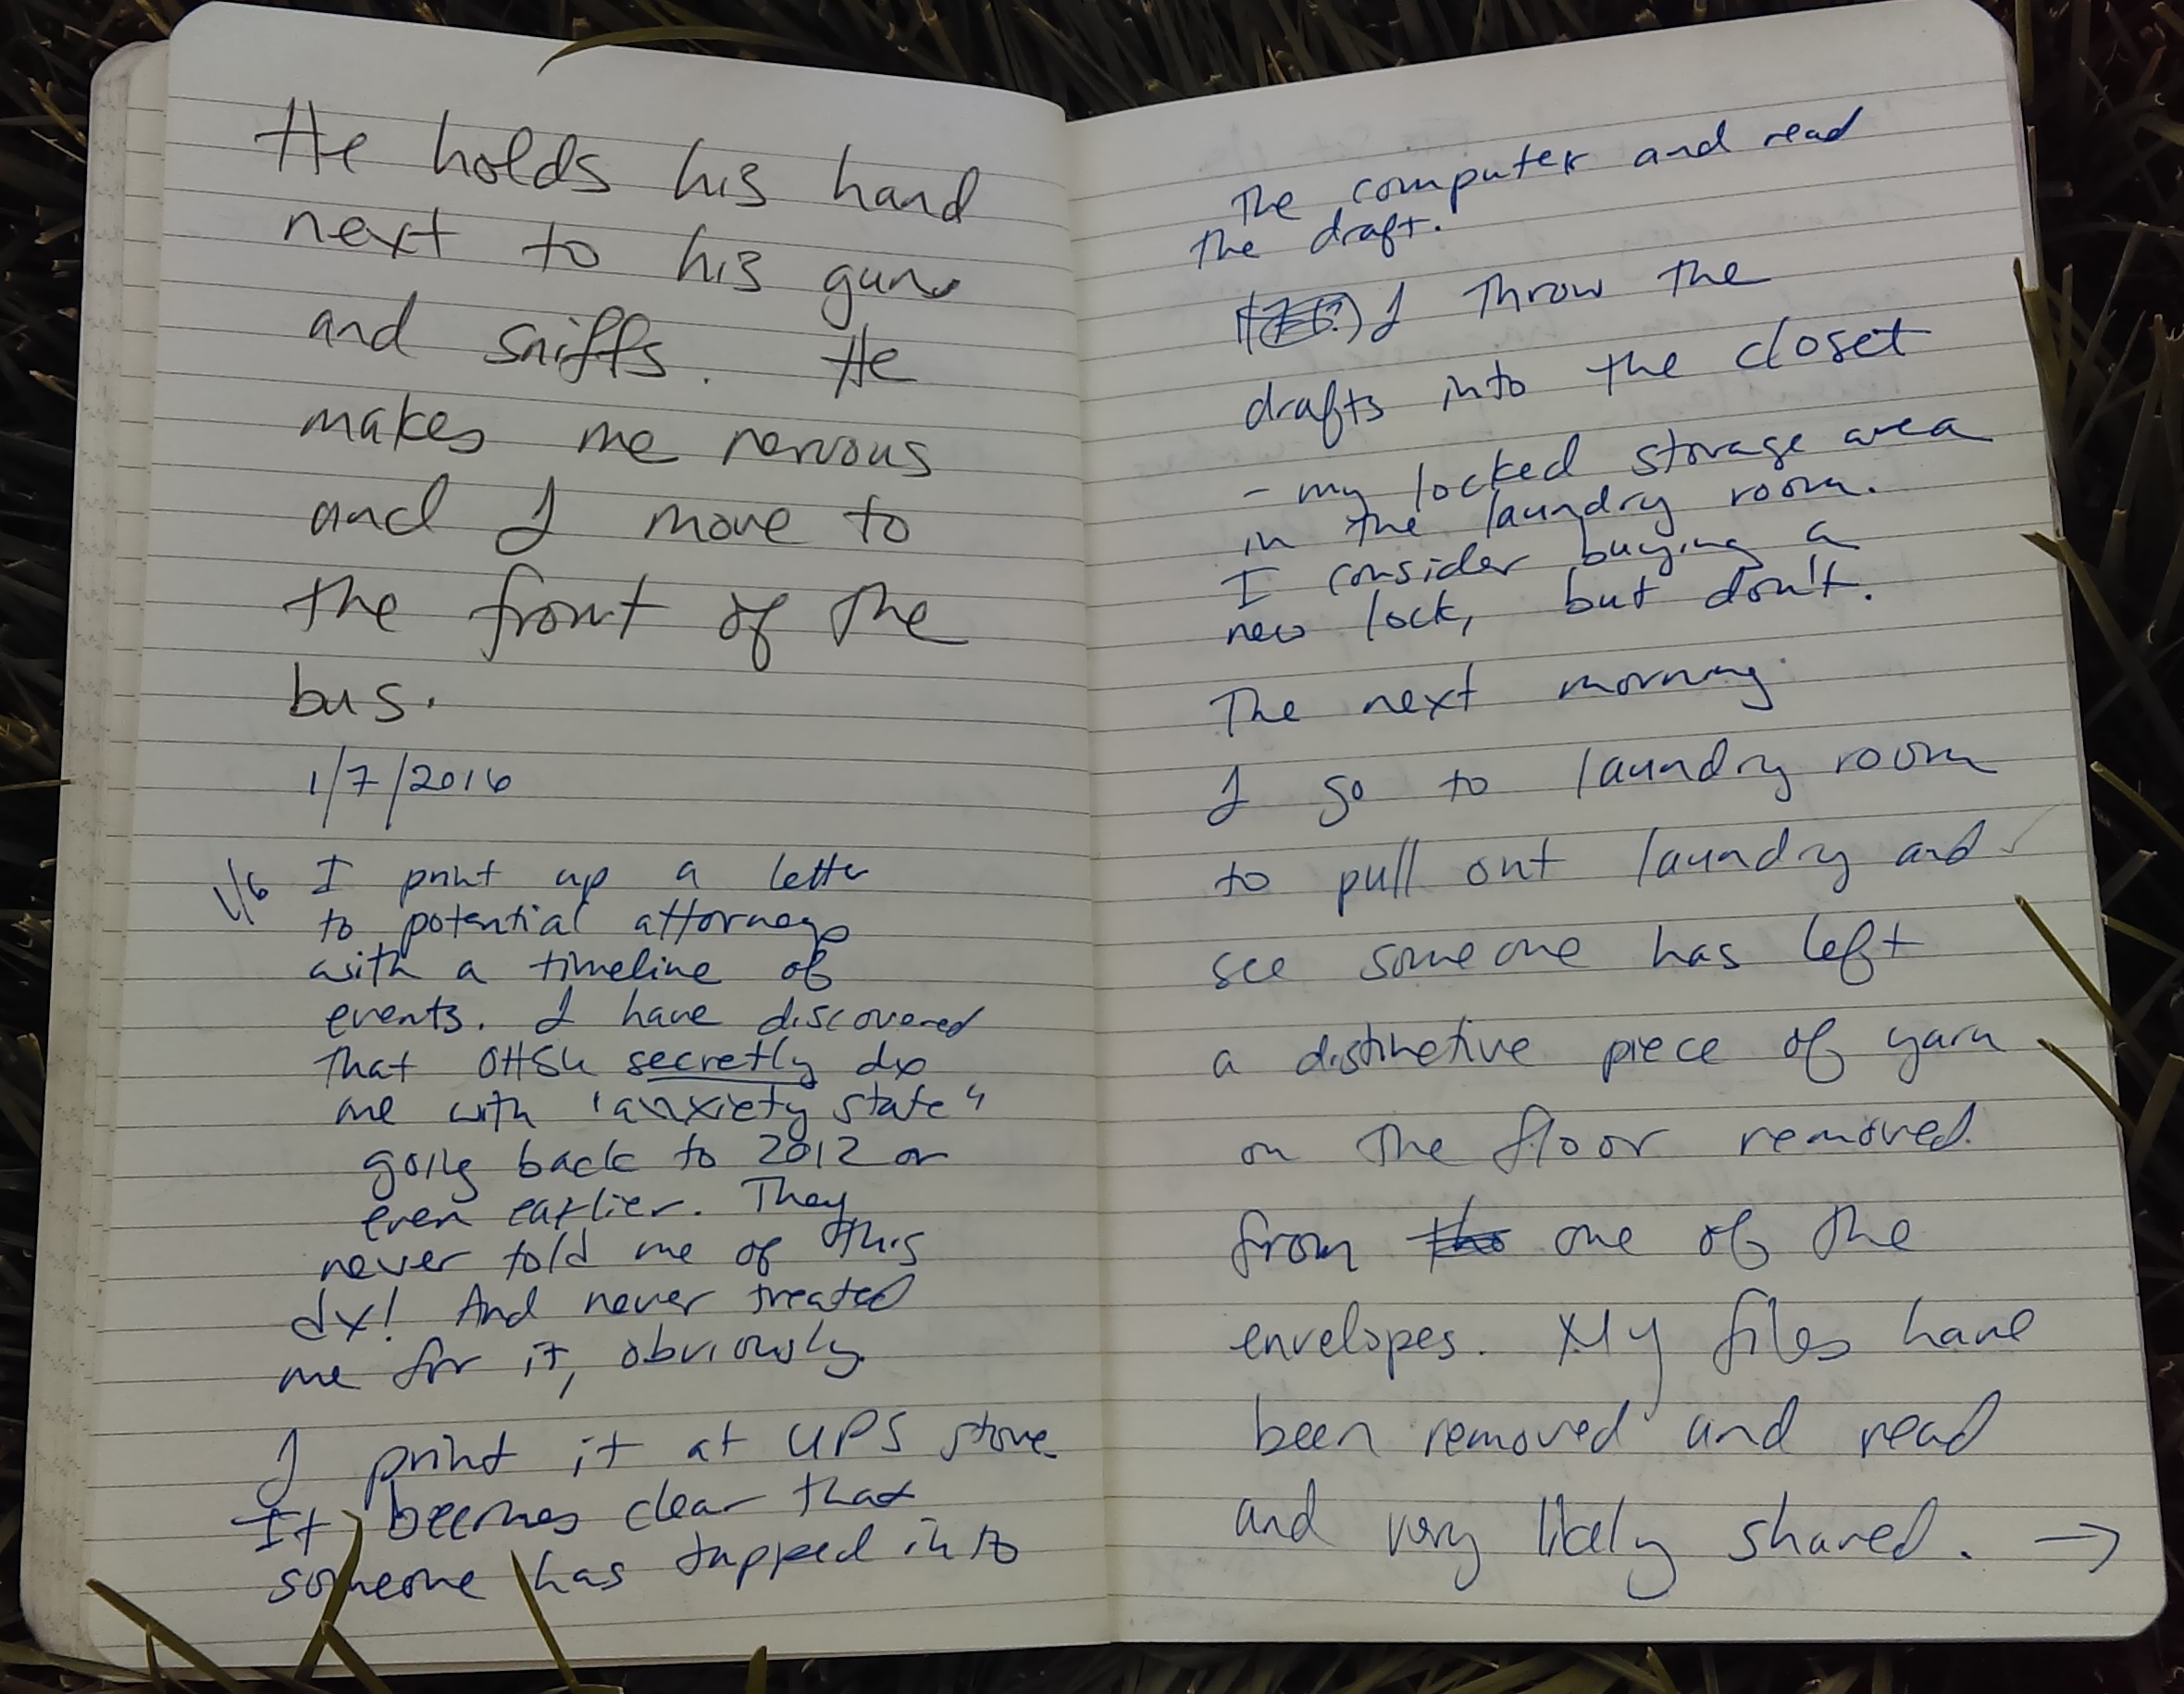 He holds his hand
next to his gun
and sniffs. He
makes me nervous
and I move to
the front of the
bus.
1/7/2016
1/6 I print up a letter
to potential attorneys
with a timeline of
events. I have discovered
that OHSU secretly dx
me with "anxiety state"
going back to 2012 or
even earlier. They
never told me of this
dx! And never treated
me for it, obviously.
I print it at UPS store
It becomes clear that
someone has tapped into
the computer and read
the draft.
I throw the
drafts into the closet
- my locked storage area
in the laundry room.
I consider buying a
new lock, but don't.
The next morning
I go to laundry room
to pull out laundry and
see someone has left
a distinctive piece of yarn
on the floor removed
from the one of the
envelopes. My files have
been removed and read
and very likely shared. →